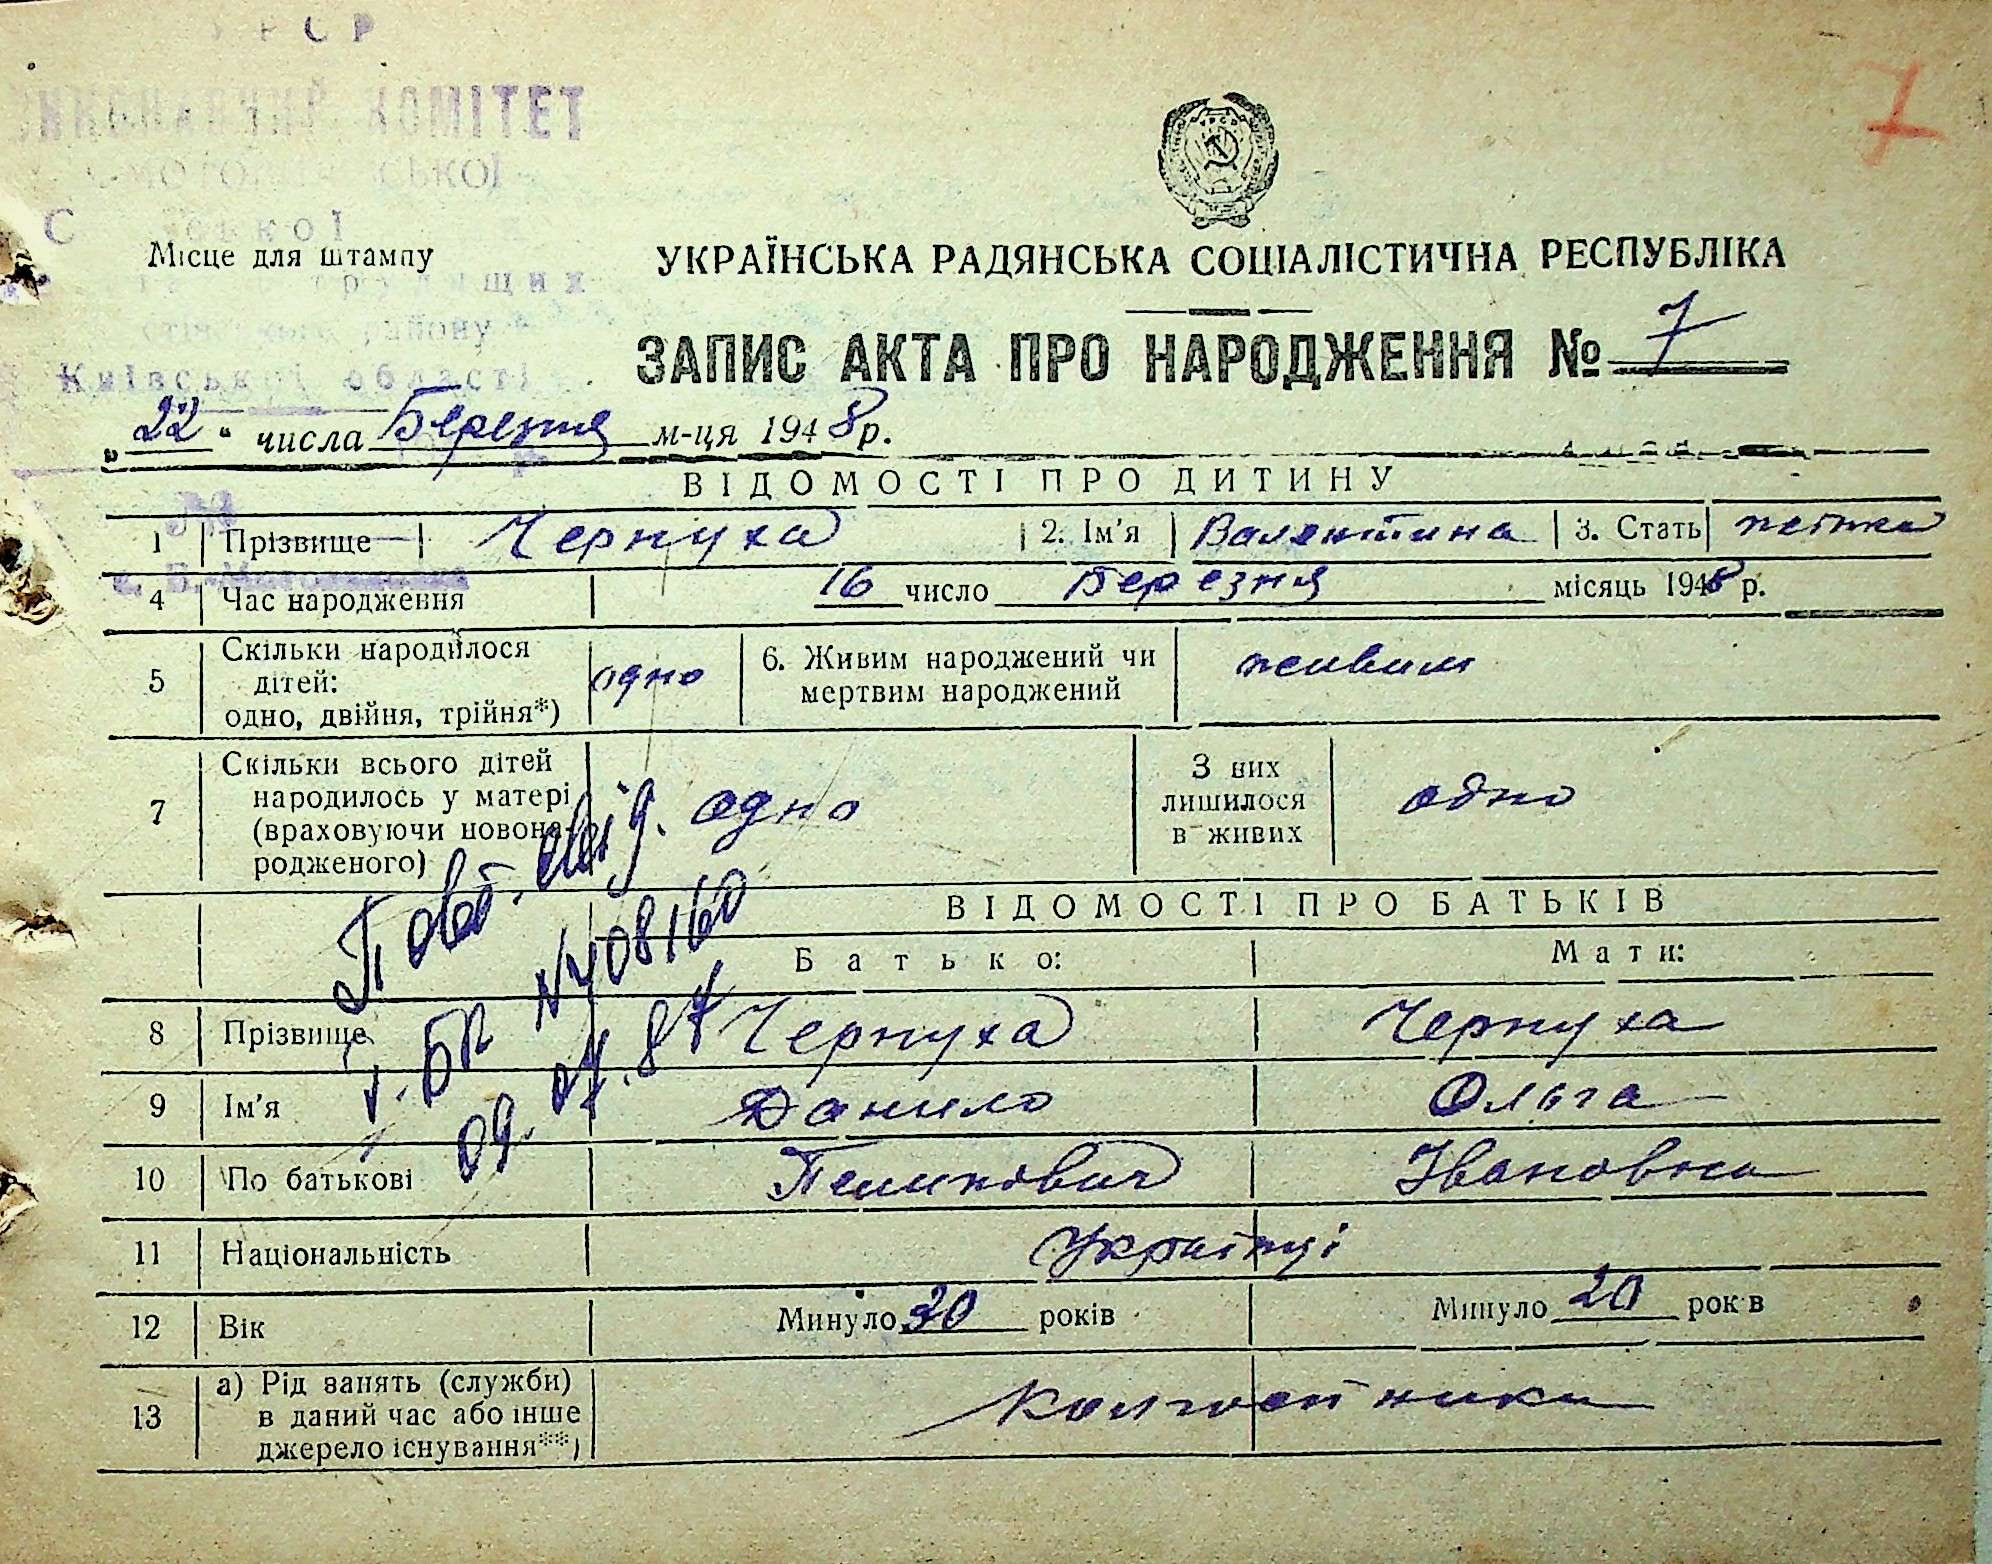 УРСР
ВИКОНАВЧИЙ КОМІТЕТ
7
Місце для штампу
району
Київської області
УКРАЇНСЬКА РАДЯНСЬКА СОЦІАЛІСТИЧНА РЕСПУБЛІКА
ЗАПИС АКТА ПРО НАРОДЖЕННЯ № 7
„22“ числа Березня м-ця 1948 р.
ВІДОМОСТІ ПРО ДИТИНУ
1 Прізвище Чернуха 2. Ім'я Валентина 3. Стать жіноча
4 Час народження 16 число Березня місяць 1948 р.
5 Скільки народилося дітей: одно, двійня, трійня*) одно 6. Живим народжений чи мертвим народжений живим
7 Скільки всього дітей народилось у матері (враховуючи новонародженого) одно З них лишилося в живих одно
Повт. свід.
№ 408160
09.07.87
ВІДОМОСТІ ПРО БАТЬКІВ
Батько: Мати:
8 Прізвище Чернуха Чернуха
9 Ім'я Данило Ольга
10 По батькові Івановна
11 Національність Українці
12 Вік Минуло 30 років Минуло 20 років
13 а) Рід занять (служби) в даний час або інше джерело існування**) Колгоспники